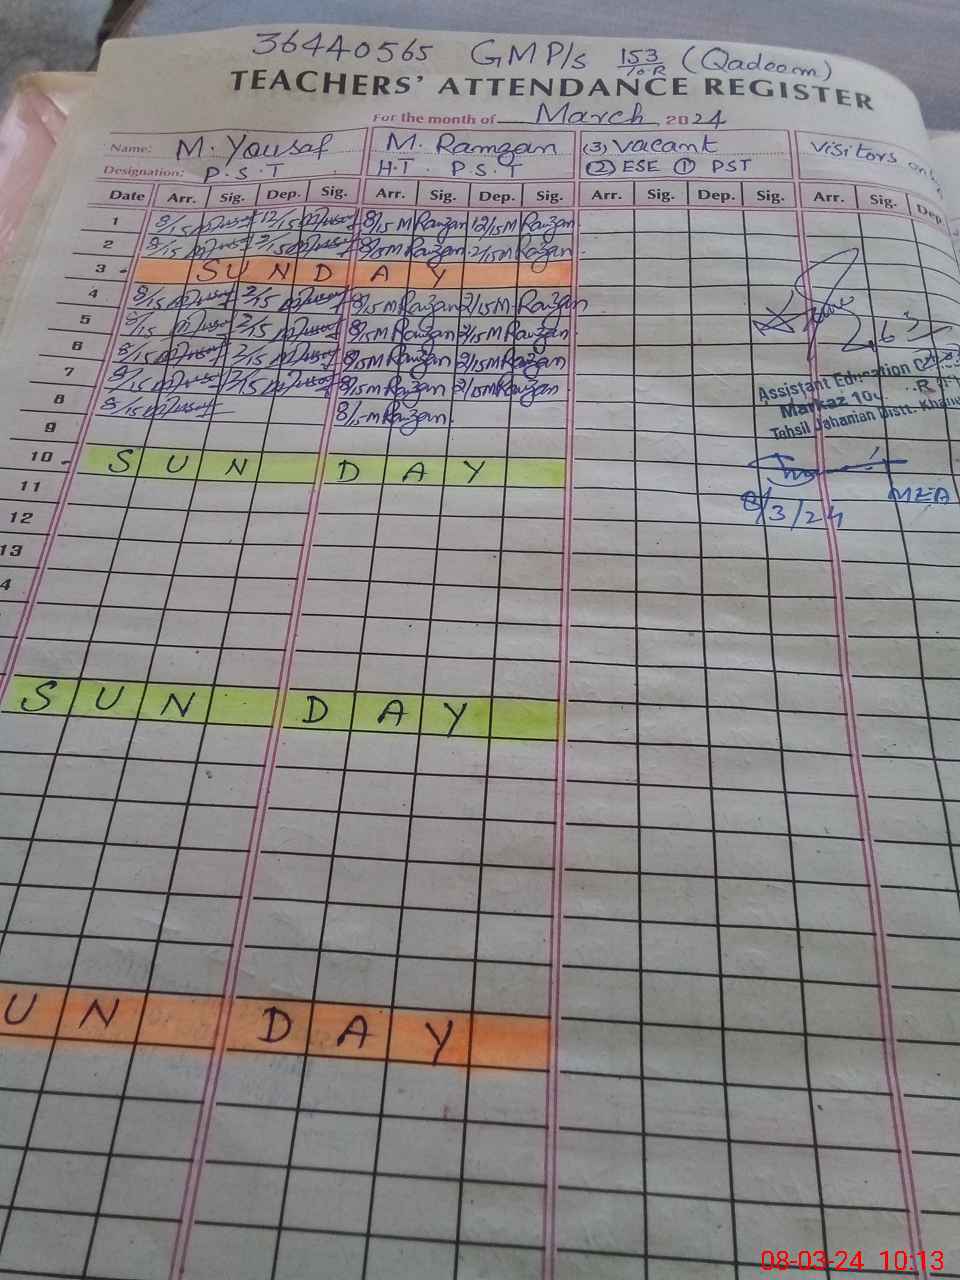 36440565 GMP/s 153/10-R (Qadeem)
TEACHERS' ATTENDANCE REGISTER
For the month of March 2024
Name: M. Yousaf M. Ramzan (3) Vacant Visitors only
Designation: P.S.T H.T. P.S.T (2) ESE (1) PST
Date Arr. Sig. Dep. Sig. Arr. Sig. Dep. Sig. Arr. Sig. Dep. Sig. Arr. Sig. Dep.
1 8/15 M Yousaf 12/15 M Yousaf 8/15 M Ramzan 12/15 M Ramzan
2 8/15 M Yousaf 2/15 M Yousaf 8/15 M Ramzan 2/15 M Ramzan
3 SUNDAY
4 8/15 M Yousaf 2/15 M Yousaf 8/15 M Ramzan 2/15 M Ramzan
5 8/15 M Yousaf 2/15 M Yousaf 8/15 M Ramzan 2/15 M Ramzan
6 8/15 M Yousaf 2/15 M Yousaf 8/15 M Ramzan 2/15 M Ramzan
7 8/15 M Yousaf 2/15 M Yousaf 8/15 M Ramzan 2/15 M Ramzan
8 8/15 M Yousaf 8/15 M Ramzan
Assistant Education
Markaz 10
Tehsil Jahanian Distt. Khan
9
10 SUNDAY
11
MEA
8/3/24
12
13
4
SUNDAY
UNDAY
08-03-24 10:13